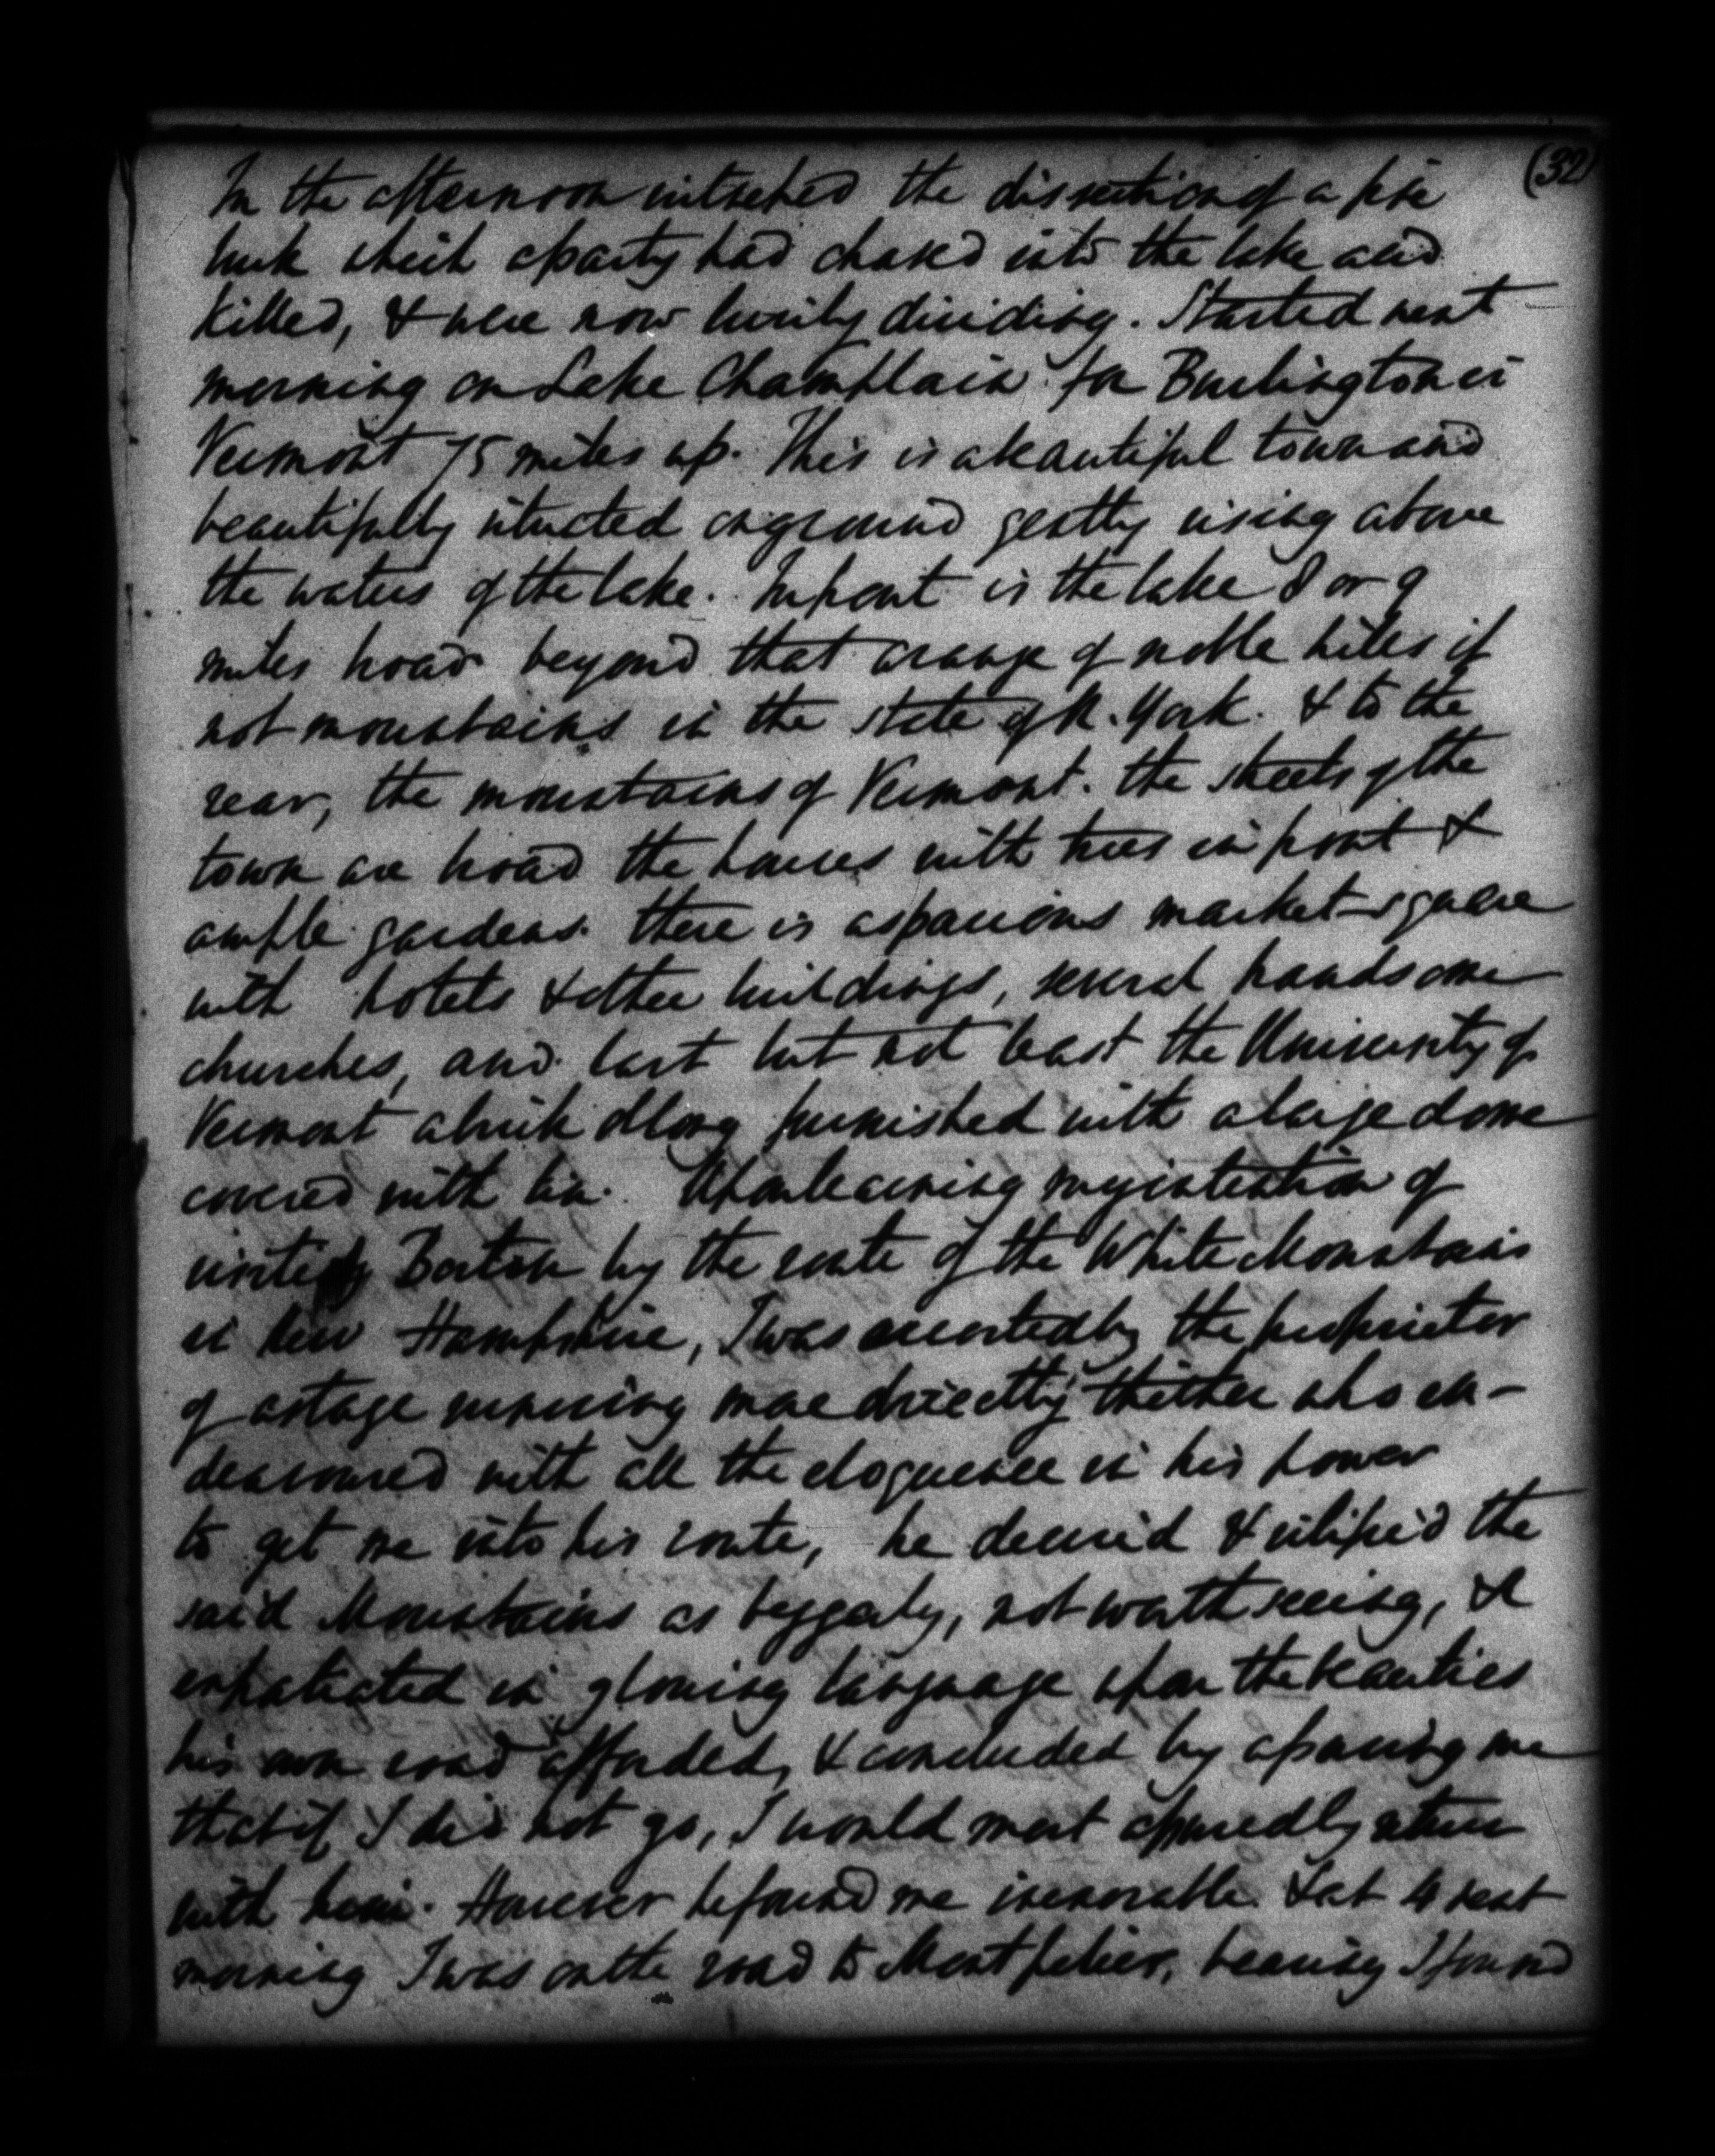 (32)
In the afternoon witnessed the dissection of a fine
buck which a party had chased into the lake and
killed, & were now busily dividing. Started next
morning on Lake Champlain for Burlington in
Vermont 75 miles up. This is a beautiful town and
beautifully situated on ground gently rising above
the waters of the lake. In front is the lake 8 or 9
miles broad beyond that a range of noble hills if
not mountains in the state of N. York. & to the
rear, the mountains of Vermont. the streets of the
town are broad the houses with trees in front &
ample gardens. there is a spacious market-square
with hotels & other buildings, several handsome
churches, and last but not least the University of
Vermont a brick oblong furnished with a large dome
covered with tin. Upon learning my intention of
visiting Boston by the route of the White Mountains
in New Hampshire, I was accosted by the proprietor
of a stage running more directly thither who en-
deavoured with all the eloquence in his power
to get me into his route, he decried & vilified the
said Mountains as beggarly, not worth seeing, &
expatiated in glowing language upon the beauties
his own road afforded, & concluded by assuring me
that if I did not go, I would most assuredly
with him. However he found me inexorable & at 4 next
morning I was on the road to Montpelier, I found